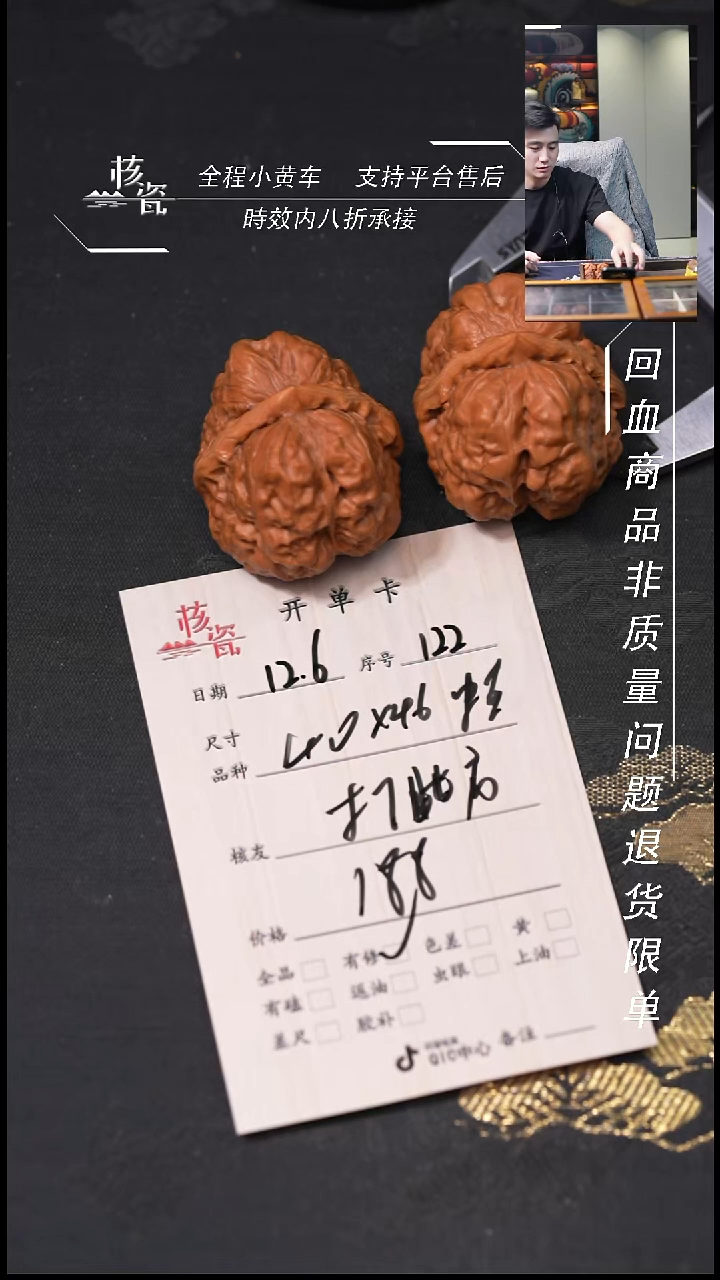 核瓷
全程小黄车 支持平台售后
時效内八折承接
回血商品非质量问题退货限单
核瓷
开单卡
日期 12.6 序号 122
尺寸
品种 40×46
核友
价格 188
全品 有修 色差 黄
有磕 返油 虫眼 上油
差尺 胶补
QIC中心 备注